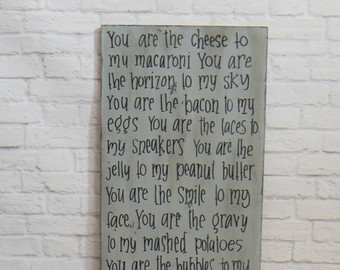 You are the cheese to
my macaroni You are
the horizon to my sky
You are the bacon to my
eggs You are the laces to
my sneakers You are the
jelly to my peanut butter
You are the smile to my
face You are the gravy
to my mashed potatoes
You are the bubbles to my